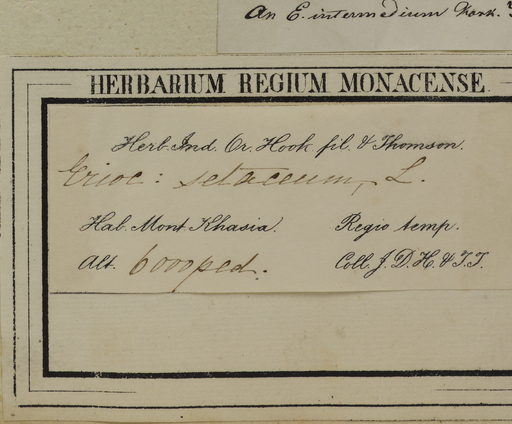 An E. intermedium Koen.
HERBARIUM REGIUM MONACENSE.
Herb. Ind. Or. Hook. fil. & Thomson.
Erioc: setaceum, L.
Hab. Mont. Khasia. Regio temp.
Alt. 6000 ped. Coll. J. D. H. & T. T.